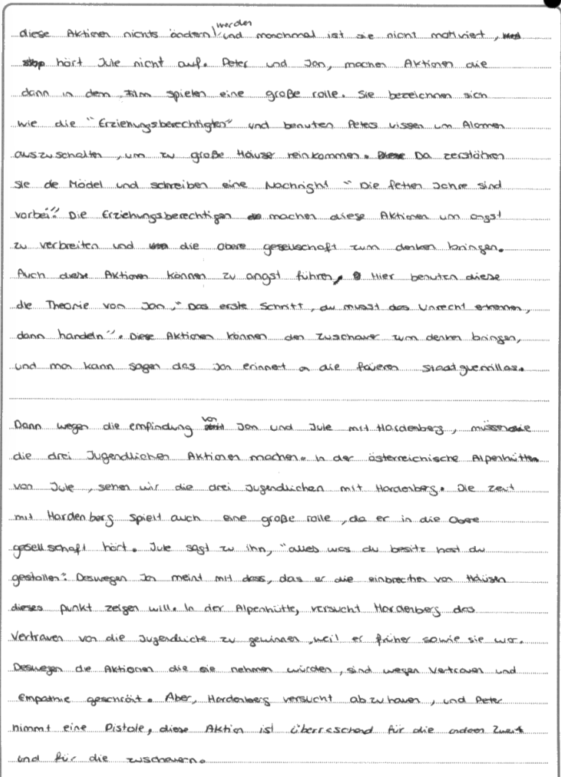 diese Aktionen nichts ändern werden und manchmal ist sie nicht motiviert,
hört Jule nicht auf. Peter und Jan, machen Aktionen die
dann in dem Film spielen eine große rolle. Sie bezeichnen sich
wie die "Erziehungsberechtigten" und benuten Peters wissen um Alarmen
auszuschalten, um zu große Häuse reinkommen. Da zerstöhren
sie de Mödel und schreiben eine Nachright "Die fetten Jahre sind
vorbei". Die Erziehungsberechtigen machen diese Aktionen um angst
zu verbreiten und die obere gesellschaft zum denken bringen.
Auch diese Aktionen können zu angst führen, Hier benuten diese
die Theorie von Jan, "Das erste Schritt, du musst das Unrecht erkennen,
dann handeln". Diese Aktionen können den Zuschauer zum denken bringen,
und man kann sagen das Jan erinnert an die Staatguerrillas.
Dann wegen die empfindung von Jan und Jule mit Hardenberg,
die drei Jugendlichen Aktionen machen. In der österreichische Alpenhütte
von Jule, sehen wir die drei Jugendlichen mit Hardenberg. Die zeit
mit Hardenberg spielt auch eine große rolle, da er in die Obere
gesellschaft hört. Jule sagt zu ihn, "alles was du besitz hast du
gestollen". Deswegen Jan meint mit dass, das er die einbrechen von Häusen
dieses punkt zeigen will. In der Alpenhütte, versucht Hardenberg das
Vertrauen von die Jugendliche zu gewinnen, weil er früher sowie sie war.
Deswegen die Aktionen die sie nehmen würden, sind wegen Vertrauen und
Empathie Aber, Hardenberg versucht abzuhauen, und Peter
nimmt eine Pistole, diese Aktion ist überreschend für die anderen Zwei
und für die zuschauern.